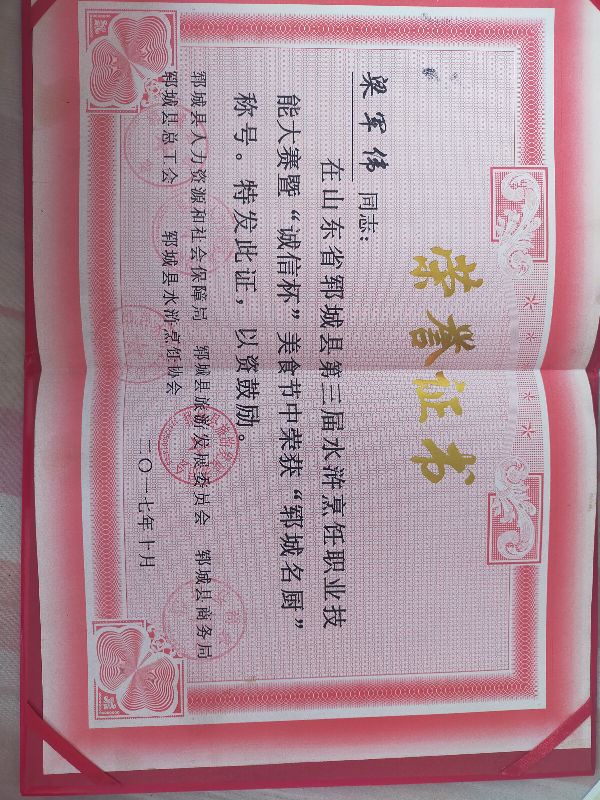 荣誉证书
梁军伟 同志:
在山东省郓城县第三届水浒烹饪职业技
能大赛暨“诚信杯”美食节中荣获“郓城名厨”
称号。特发此证，以资鼓励。
郓城县人力资源和社会保障局 郓城县旅游发展委员会 郓城县商务局
郓城县总工会 郓城县水浒烹饪协会
二〇一七年十月